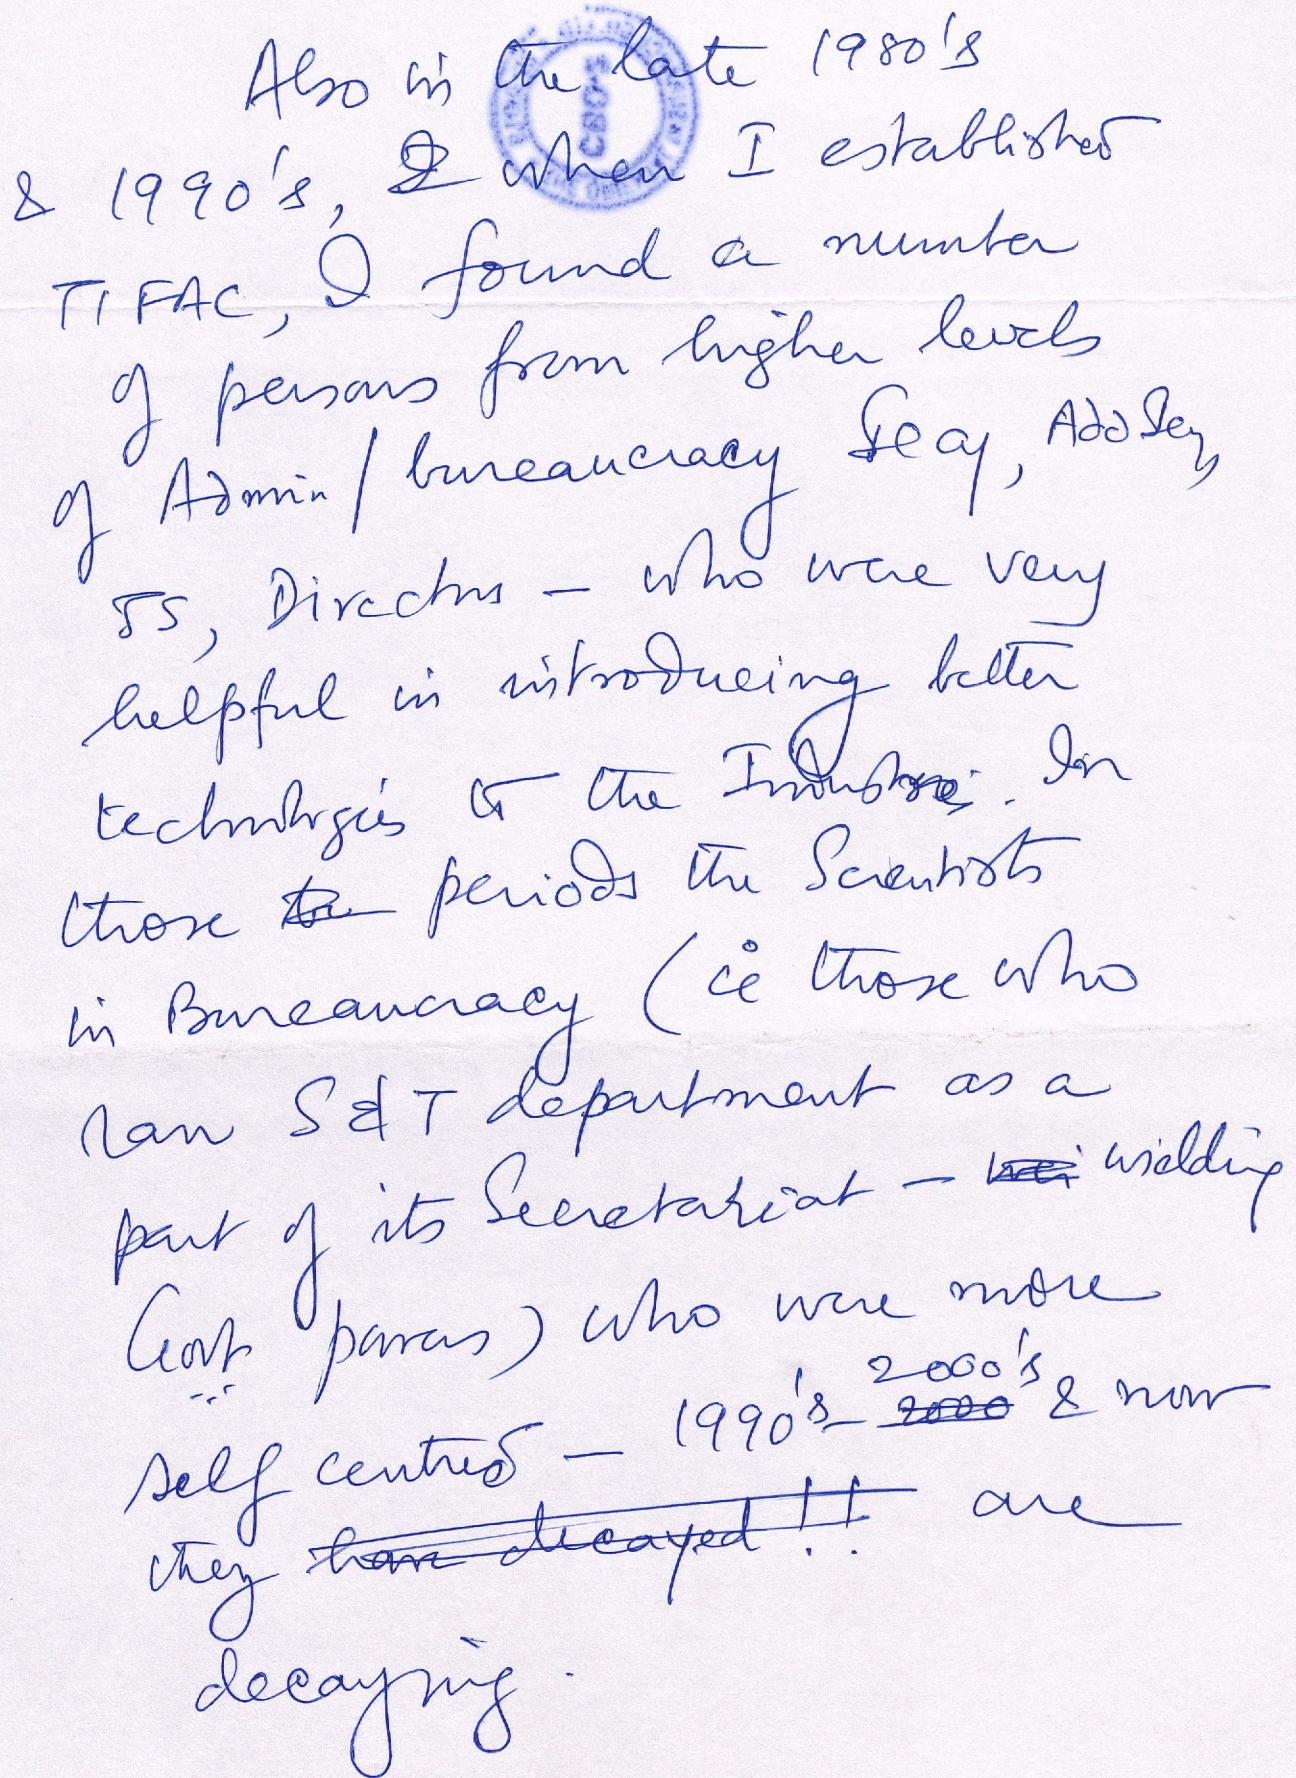 Also in the late 1980's
& 1990's, I when I established
TIFAC, I found a number
of persons from higher levels
of Admin / bureaucracy Secy, Add Secy,
JS, Directors – who were very
helpful in introducing better
technologies to the Industries. In
those periods the Scientists
in Bureaucracy (ie those who
ran S&T department as a
part of its Secretariat – wielding
Govt powers) who were more
2000's
self centred – 1990's – 2000 & now
they have decayed!! are
decaying.
CBD'S